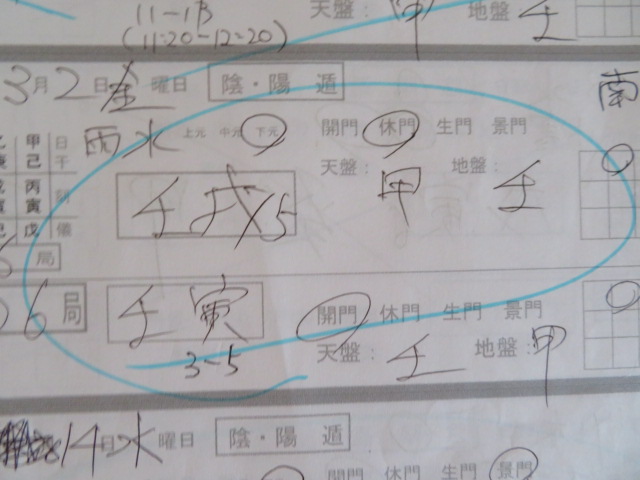 11-1時
(11:20-12:20)
天盤: 甲 地盤: 壬
3月2日金曜日 陰・陽 遁 南
雨水 上元 中元 下元 開門 休門 生門 景門
甲己 日干
天盤: 甲 地盤: 壬
丙寅 刻
壬戌/15
戊 儀
局
6局 壬寅 開門 休門 生門 景門
3-5 天盤: 壬 地盤: 甲
14日水曜日 陰・陽 遁
開門 休門 生門 景門